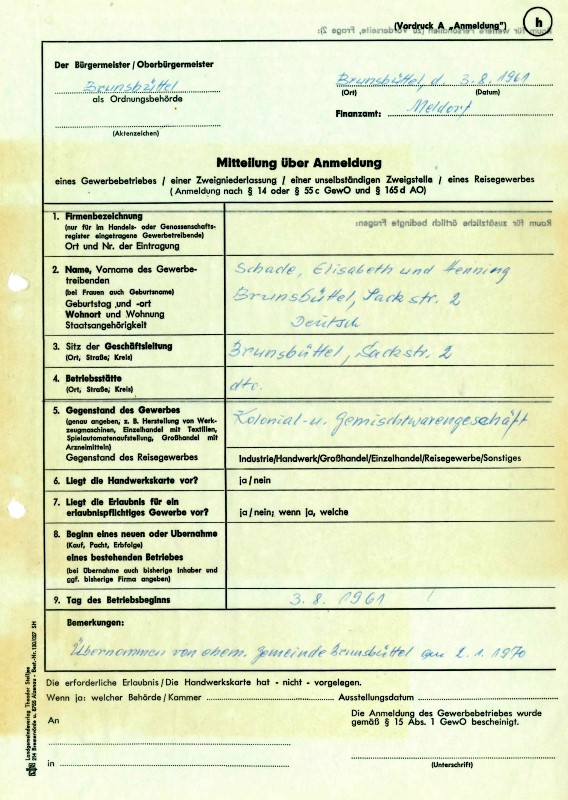 (Vordruck A „Anmeldung“)
h
Raum für weitere Personalien (zu Vorderseite, Frage 2):
Der Bürgermeister/Oberbürgermeister
Brunsbüttel
als Ordnungsbehörde
(Aktenzeichen)
Brunsbüttel, d. 3.8.1961
(Ort) (Datum)
Finanzamt: Meldorf
Mitteilung über Anmeldung
eines Gewerbebetriebes / einer Zweigniederlassung / einer unselbständigen Zweigstelle / eines Reisegewerbes
(Anmeldung nach § 14 oder § 55 c GewO und § 165 d AO)
1. Firmenbezeichnung
(nur für im Handels- oder Genossenschafts-
register eingetragene Gewerbetreibende)
Ort und Nr. der Eintragung
Raum für zusätzliche örtlich bedingte Fragen:
2. Name, Vorname des Gewerbe-
treibenden
(bei Frauen auch Geburtsname)
Geburtstag und -ort
Wohnort und Wohnung
Staatsangehörigkeit
Schade, Elisabeth und Henning
Brunsbüttel, Sackstr. 2
Deutsch
3. Sitz der Geschäftsleitung
(Ort, Straße, Kreis)
Brunsbüttel, Sackstr. 2
4. Betriebsstätte
(Ort, Straße, Kreis)
dto.
5. Gegenstand des Gewerbes
(genau angeben, z. B. Herstellung von Werk-
zeugmaschinen, Einzelhandel mit Textilien,
Spielautomatenaufstellung, Großhandel mit
Arzneimitteln)
Gegenstand des Reisegewerbes
Kolonial- u. Gemischtwarengeschäft
Industrie/Handwerk/Großhandel/Einzelhandel/Reisegewerbe/Sonstiges
6. Liegt die Handwerkskarte vor?
ja/nein
7. Liegt die Erlaubnis für ein
erlaubnispflichtiges Gewerbe vor?
ja/nein; wenn ja, welche
8. Beginn eines neuen oder Übernahme
(Kauf, Pacht, Erbfolge)
eines bestehenden Betriebes
(bei Übernahme auch bisherige Inhaber und
ggf. bisherige Firma angeben)
9. Tag des Betriebsbeginns
3.8.1961
Bemerkungen:
Übernommen von ehem. Gemeinde Brunsbüttel am 2.1.1970
Die erforderliche Erlaubnis/Die Handwerkskarte hat - nicht - vorgelegen.
Wenn ja: welcher Behörde/Kammer
Ausstellungsdatum
An
Die Anmeldung des Gewerbebetriebes wurde
gemäß § 15 Abs. 1 GewO bescheinigt.
in
(Unterschrift)
Landgemeindeverlag Theodor Stelljes